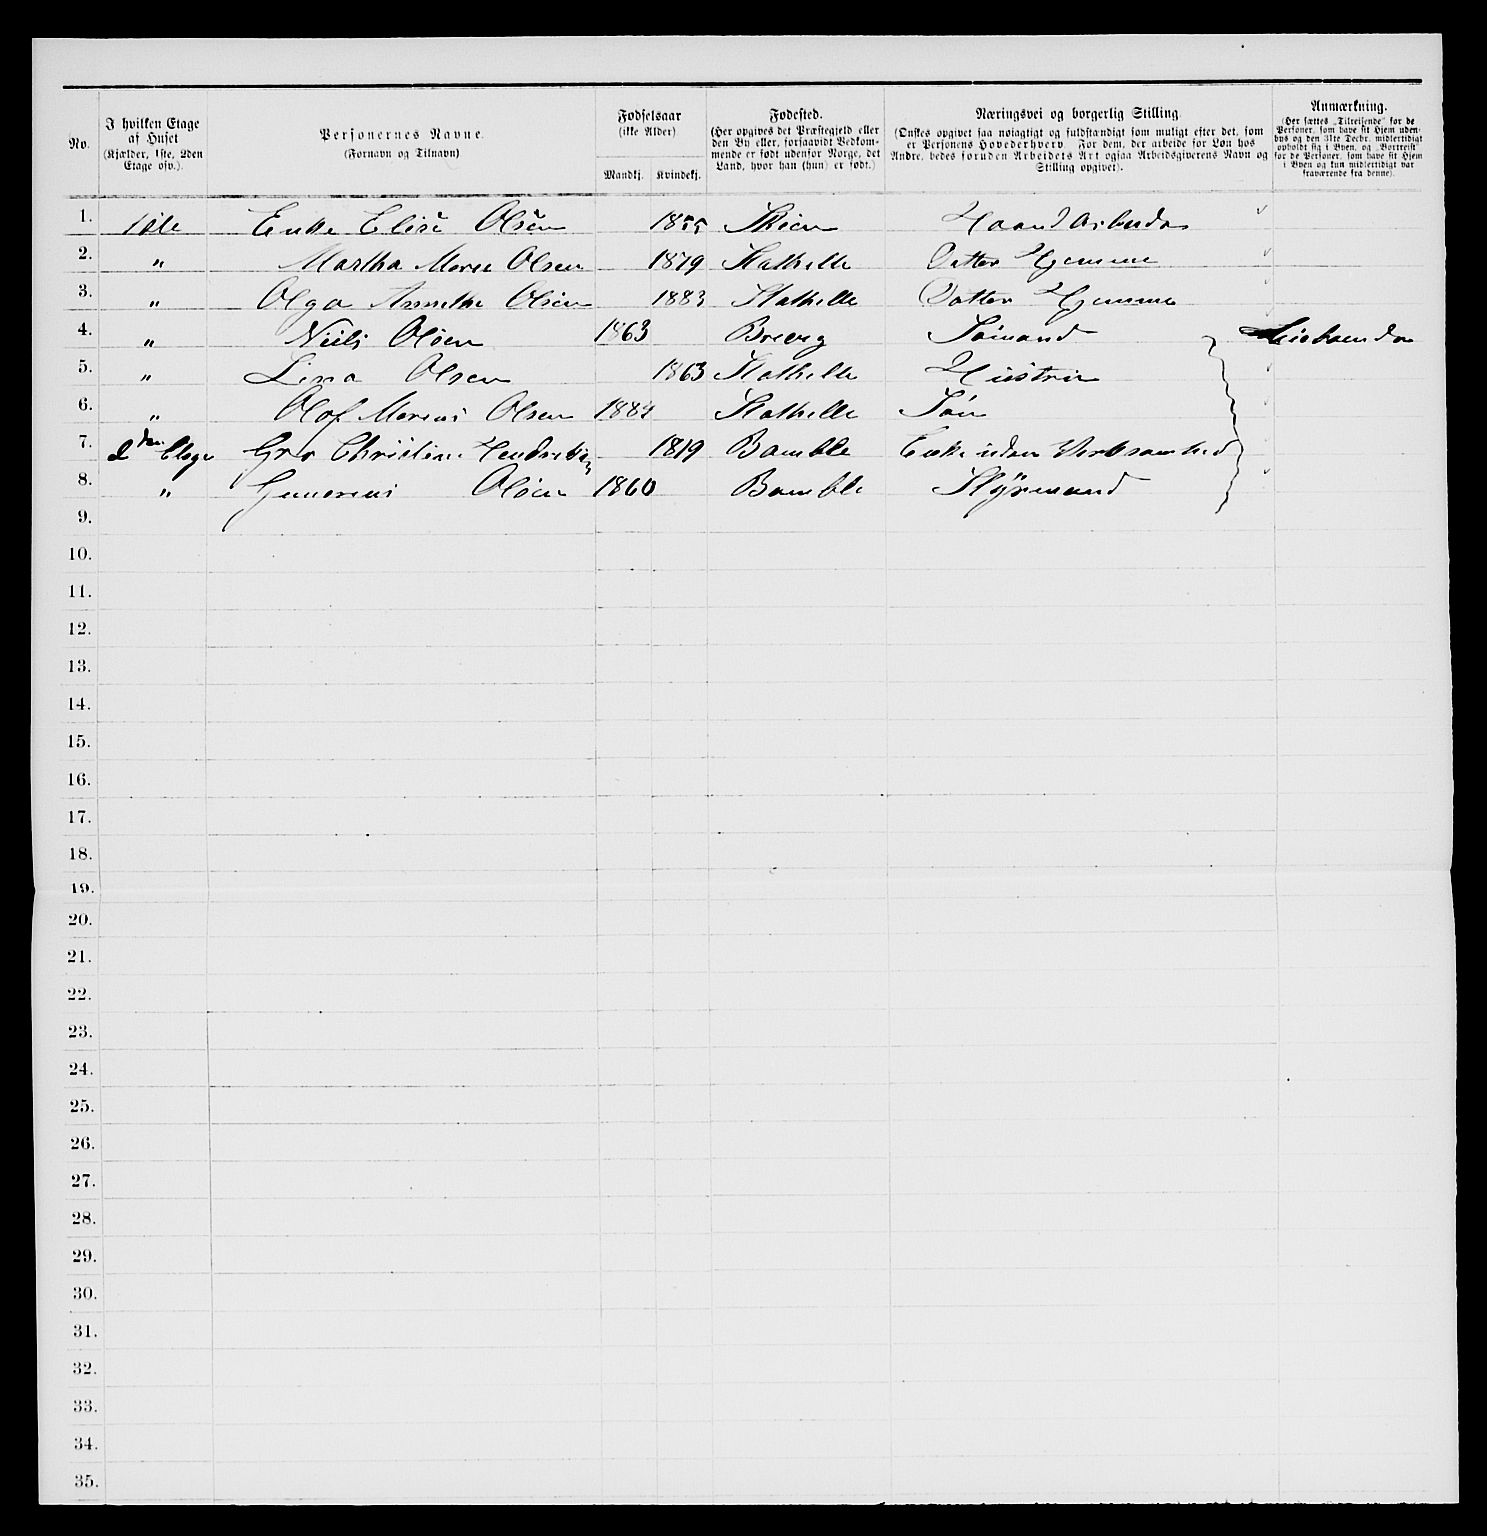 No.
I hvilken Etage af Huset (Kjælder, 1ste, 2den Etage osv.).
Personernes Navne. (Fornavn og Tilnavn)
Fødselsaar (ikke Alder) Mandkj. Kvindekj.
Fødested. (Her opgives det Præstegjeld eller den By eller, forsaavidt Vedkommende er født udenfor Norge, det Land, hvor han (hun) er født.)
Næringsvei og borgerlig Stilling. (Ønskes opgivet saa nøiagtigt og fuldstændigt som muligt efter det, som er Personens Hovederhverv. For dem, der arbeide for Løn hos Andre, bedes foruden Arbeidets Art ogsaa Arbeidsgiverens Navn og Stilling opgivet).
Anmærkning. (Her sættes „Tilreisende“ for de Personer, som have sit Hjem udenbys og den 31te Decbr. midlertidigt opholdt sig i Byen, og „Bortreist“ for de Personer, som have sit Hjem i Byen og kun midlertidigt var fraværende fra denne).
1. 1ste Enke Elise Olsen 1855 Skien Haand Arbeide
2. " Martha Marie Olsen 1879 Stathelle Datter Hjemme
3. " Olga Annethe Olsen 1883 Stathelle Datter Hjemme
4. " Niels Olsen 1863 Brevig Sømand
5. " Lina Olsen 1863 Stathelle Hustru
6. " Olof Marius Olsen 1884 Stathelle Søn
7. 2den Etage Gro Christine Hendriksen 1819 Bamble Enke uden Virksomhed
8. " Gunerius Olsen 1860 Bamble Styrmand
9.
10.
11.
12.
13.
14.
15.
16.
17.
18.
19.
20.
21.
22.
23.
24.
25.
26.
27.
28.
29.
30.
31.
32.
33.
34.
35.